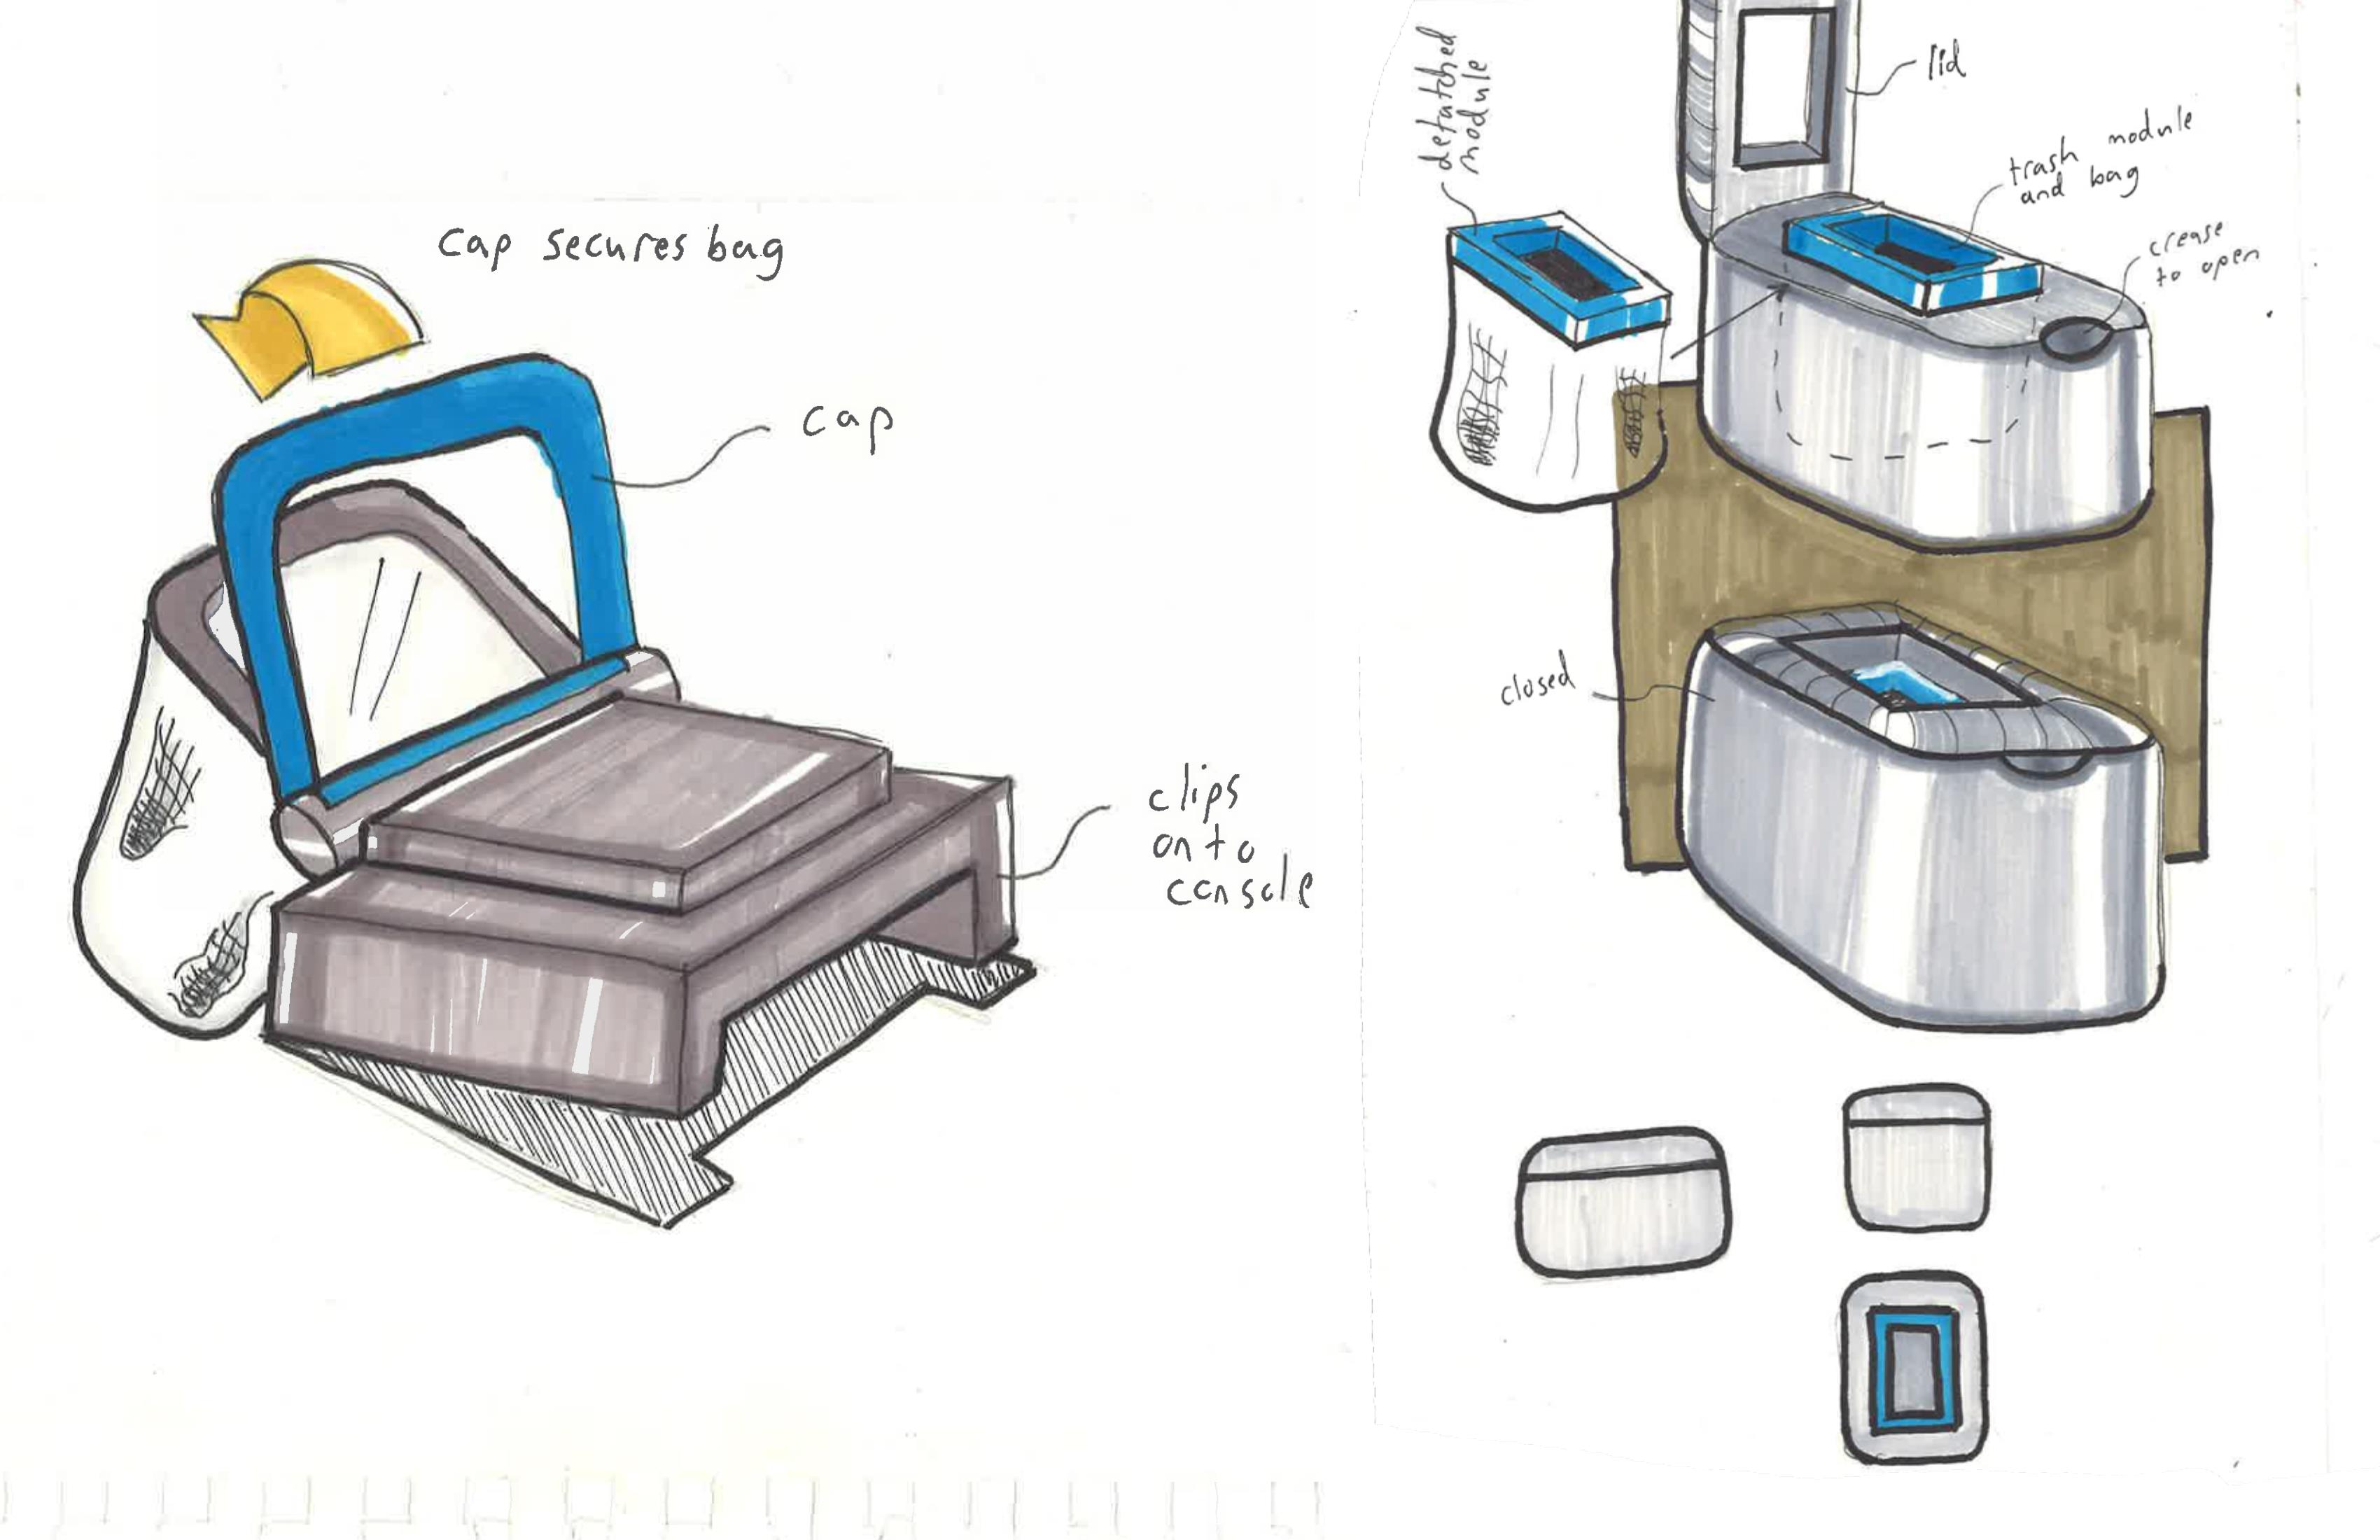 cap secures bag
cap
clips
onto
console
detatched
module
lid
trash module
and bag
crease
to open
closed